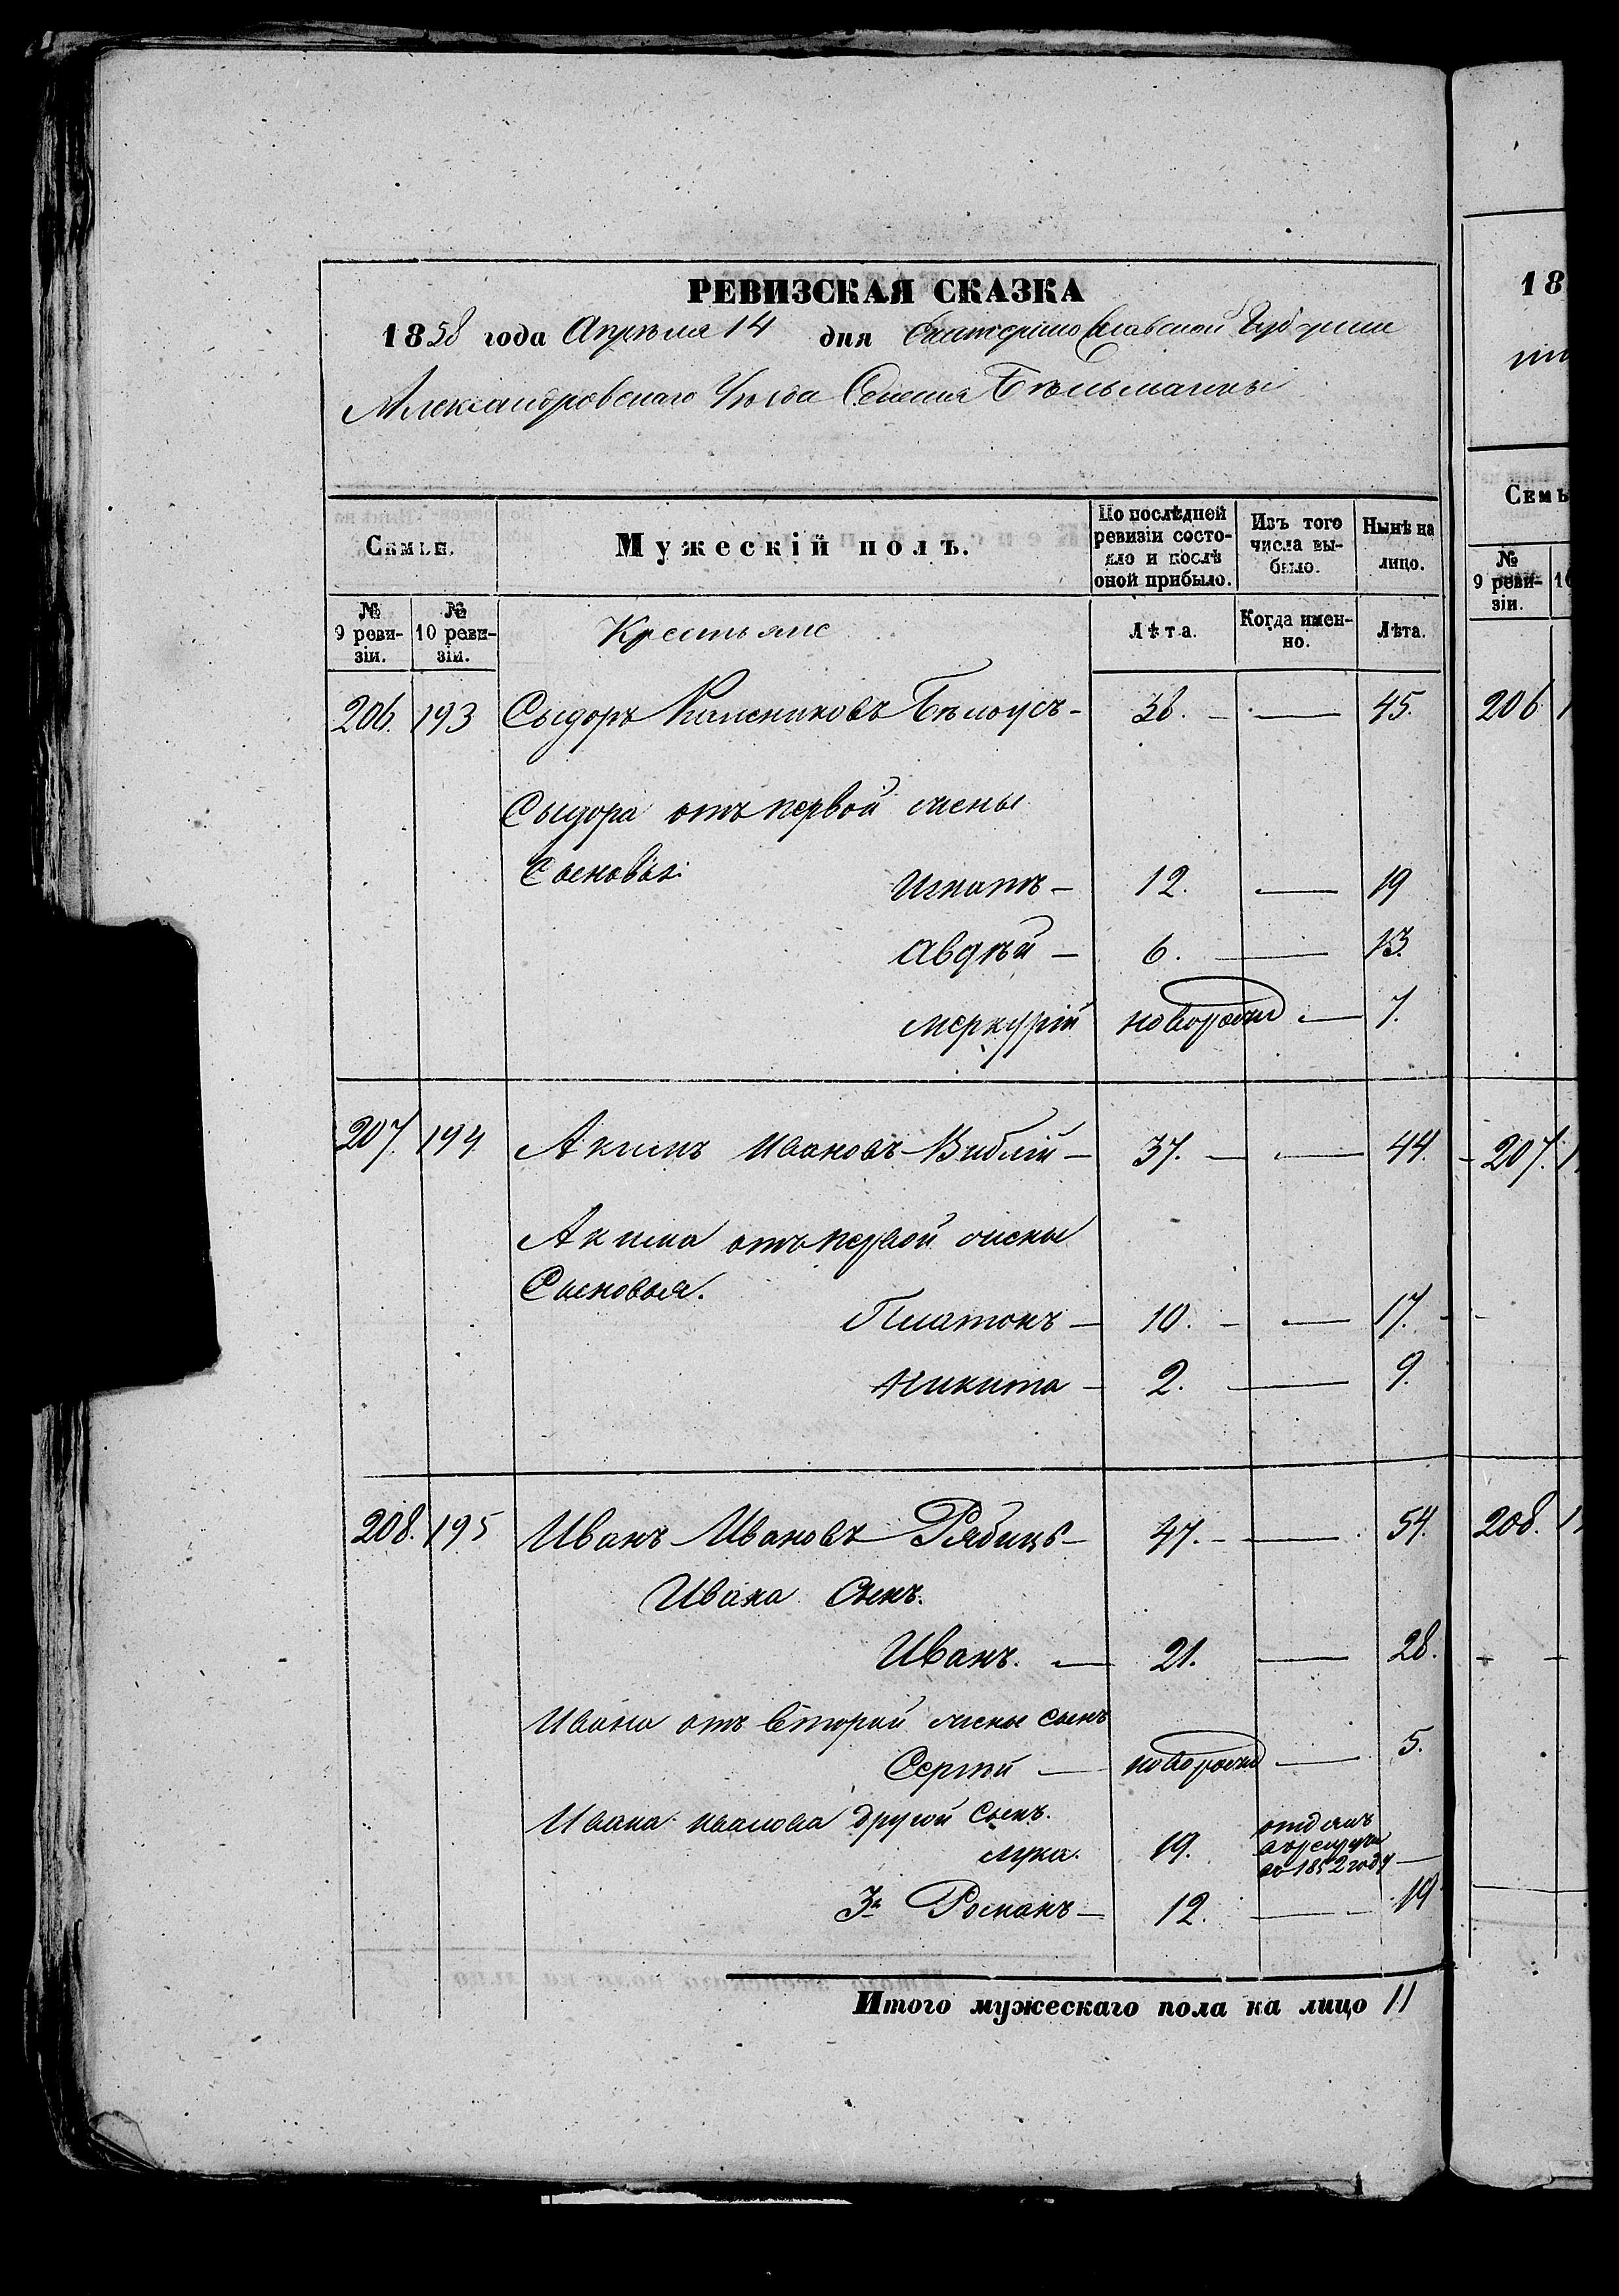 РЕВИЗСКАЯ СКАЗКА
1858 года Апреля 14 дня Екатеринославской Губернии
Александровскаго Уезда Селения Бельманки
Семьи. Мужескій полъ. По послѣдней ревизіи состояло и послѣ оной прибыло. Изъ того числа выбыло. Нынѣ на лицо.
№ 9 ревизіи. № 10 ревизіи. Крестьяне Лѣта. Когда именно. Лѣта.
206. 193 Сыдоръ Бѣлоусъ – 38. – — 45.
Сыдора отъ первой жены
Сыновья:
Игнатъ – 12. — 19
Авдѣй – 6. — 13.
Меркурій новорожд — 7.
207. 194. Акимъ Ивановъ – 37. — — 44.
Акима отъ первой жены
Сыновья.
Платонъ – 10. – — 17.
Никита – 2. — 9.
208. 195 Иванъ Ивановъ Рябицъ – 47. – — 54.
Ивана сынъ.
Иванъ. — 21. — 28.
Ивана отъ второй жены сынъ
Сергѣй — новорожд — 5.
Ивана Иванова другой сынъ.
Лука. 19. отданъ
въ рекруты
въ 1852 году —
3й Романъ – 12. — 19
Итого мужескаго пола на лицо 11
18
Семь
№ 9 ревизіи. 10
206
207.
208.